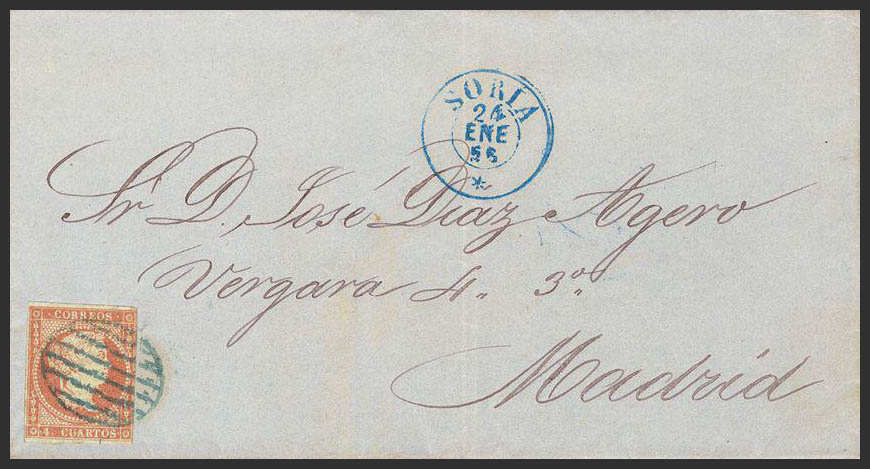 SORIA
24
ENE
56
Sr. D. José Díaz Agero
Vergara 4. 3º
Madrid
CORREOS
4. CUARTOS